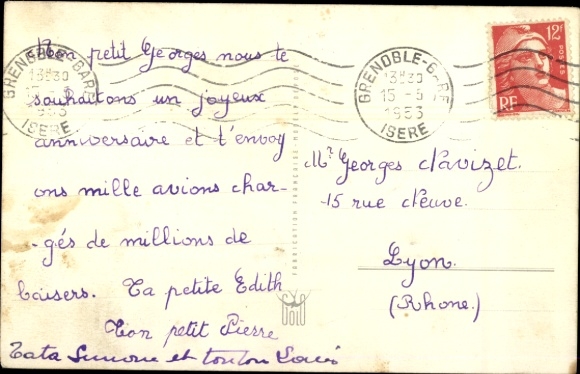 Mon petit Georges nous te
souhaitons un joyeux
anniversaire et t'envoy
ons mille avions char-
-gés de millions de
baisers. Ta petite Edith
Ton petit Pierre
Tata Simone et tonton Louis
GRENOBLE-GARE
13H30
15-5
1953
ISERE
GRENOBLE-GARE
13H30
15-5
1953
ISERE
12F
POSTES
RF
Mr Georges
15 rue
Lyon.
(Rhone.)